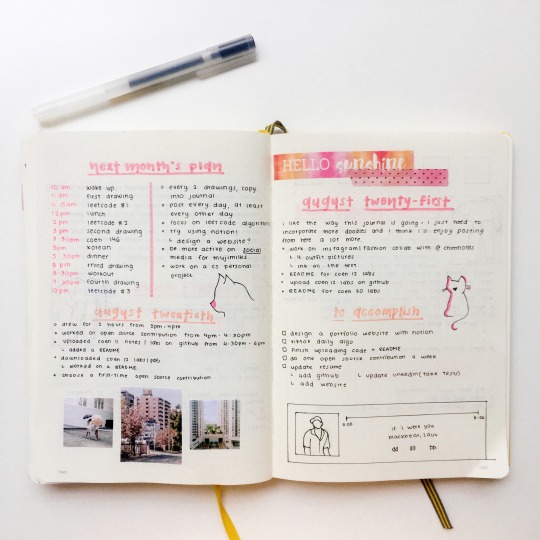 next month's plan
10 am wake up
11 am first drawing
11:30am leetcode #1
12pm lunch
2 pm leetcode #2
3 pm second drawing
3:30pm coen 146
5pm korean
5:30pm dinner
8 pm third drawing
8:30pm workout
9:30pm fourth drawing
10pm leetcode #3
• every 2 drawings, copy
into journal
• post every day, at least
every other day
• focus on leetcode algorithms
• try using notion!
↳ design a website?
• be more active on social
media for mujimilks
• work on a cs personal
project
august twentieth
o drew for 2 hours from 2pm-4pm
• worked on open source contribution from 4pm-4:30pm
• uploaded coen 11 notes / labs on github from 4:30pm-6pm
↳ added a README
• downloaded coen 12 labs / pdfs
↳ worked on a README
• choose a first-time open source contribution
140
HELLO sunshine
august twenty-first
i like the way this journal is going - i just need to
incorporate more doodles and i think i'll enjoy posting
from here a lot more.
• work on instagram fashion collab with @
↳ 4 outfit pictures
↳ ink on the text
• README for coen 12 labs
• upload coen 12 labs on github
• README for coen 20 labs
to accomplish
□ design a portfolio website with notion
□ tiktok daily algo
□ finish uploading code + README
□ do one open source contribution a week
□ update resume
↳ add github ↳ update linkedin
↳ add website
0:00
if i were you
blackbear, Lauv
141